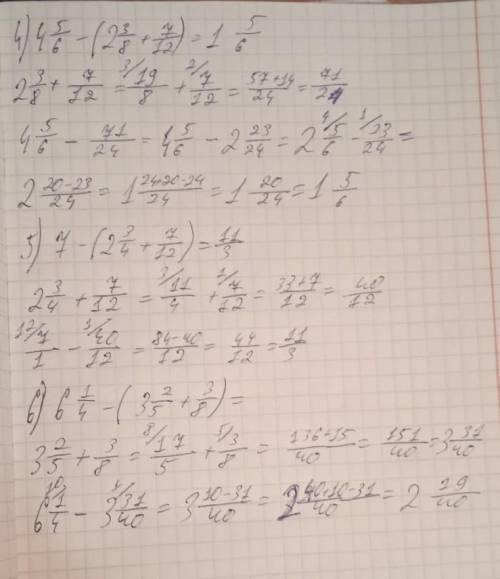 4) 4 5/6 - (2 3/8 + 7/12) = 1 5/6
2 3/8 + 7/12 = ³/19/8 + ²/7/12 = 57+14/24 = 71/24
4 5/6 - 71/24 = 4 5/6 - 2 23/24 = 2 ⁴/5/6 - ¹/23/24 =
2 20-23/24 = 1 24+20-24/24 = 1 20/24 = 1 5/6
5) 7 - (2 3/4 + 7/12) = 11/3
2 3/4 + 7/12 = ³/11/4 + ¹/7/12 = 33+7/12 = 40/12
¹²/7/1 - ¹/40/12 = 84-40/12 = 44/12 = 11/3
6) 6 1/4 - (3 2/5 + 3/8) =
3 2/5 + 3/8 = ⁸/17/5 + ⁵/3/8 = 136+15/40 = 151/40 = 3 31/40
6 ¹⁰/1/4 - 3 ¹/31/40 = 3 10-31/40 = 2 40+10-31/40 = 2 19/40